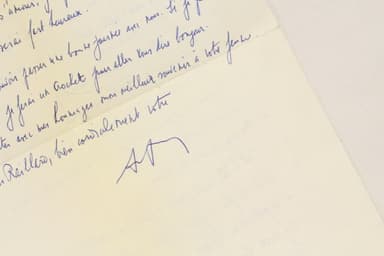 amour, j
serai fort heureux.
passer une bonne journée avec nous. Si je p
je ferai un crochet pour aller vous dire bonjour.
avec mes hommages mon meilleur souvenir à votre femme
bien cordialement vôtre